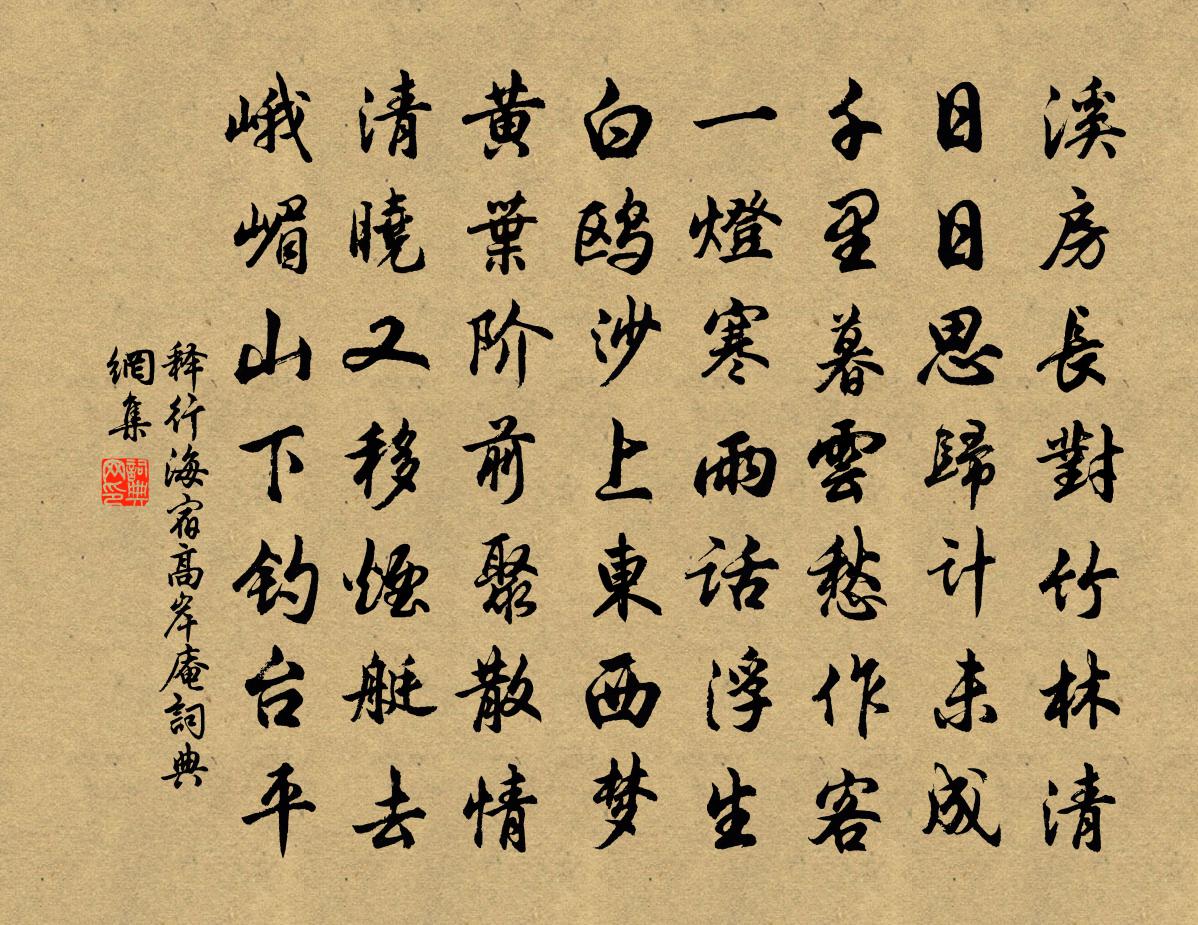 溪房長對竹林清
日日思歸計未成
千里暮雲愁作客
一燈寒雨話浮生
白鸥沙上東西梦
黄葉阶前聚散情
清曉又移煙艇去
峨嵋山下钓台平
释行海宿高岸庵詞典
網集
詞典网印